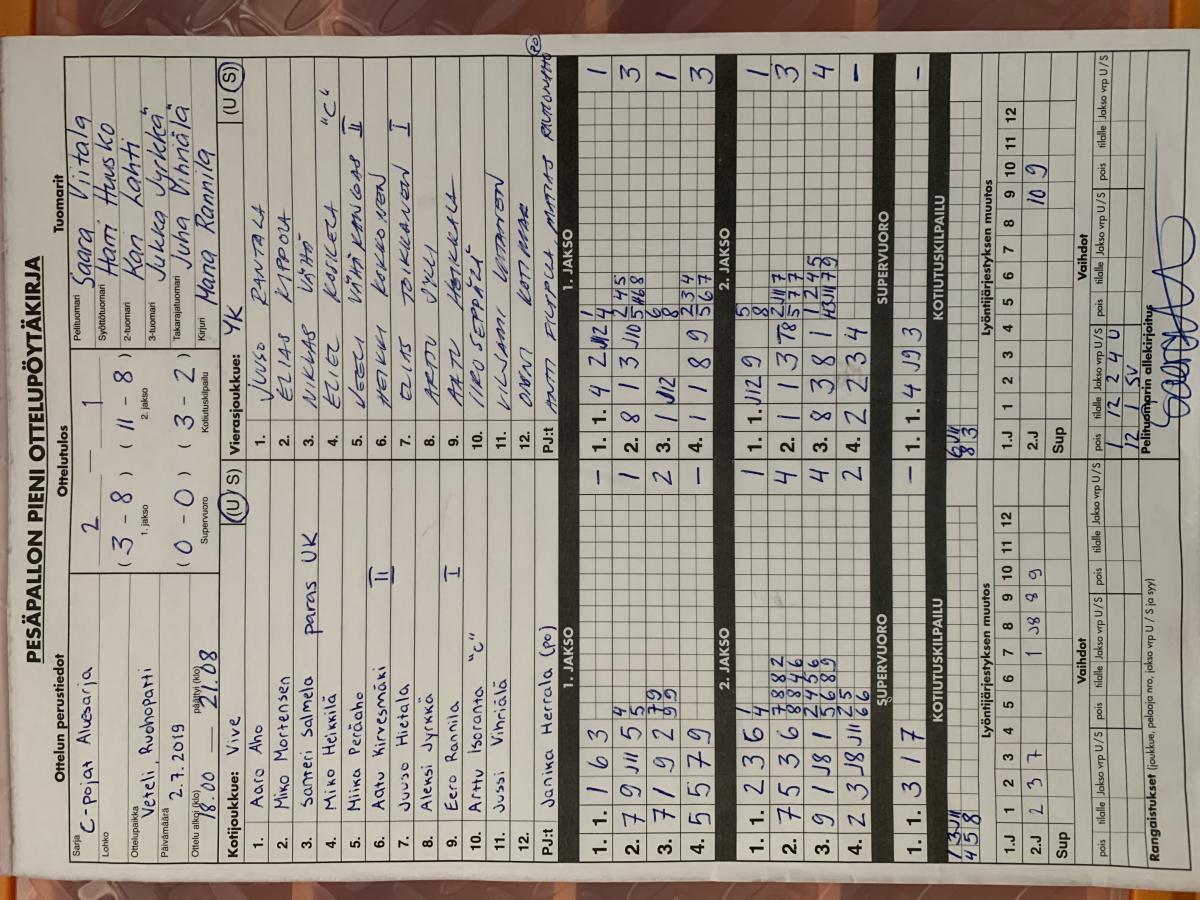 PESÄPALLON PIENI OTTELUPÖYTÄKIRJA
Ottelun perustiedot
Sarja C-pojat Aluesarja
Lohko
Ottelupaikka Veteli, Ruohopatti
Päivämäärä 2.7.2019
Ottelu alkoi (klo) 18.00 — päättyi (klo) 21.08
Ottelutulos
2 — 1
(3 - 8) (11 - 8)
1. jakso 2. jakso
(0 - 0) (3 - 2)
Supervuoro Kotiutuskilpailu
Tuomarit
Pelituomari Saara Viitala
Syöttötuomari Harri Huusko
2-tuomari Kari Lahti
3-tuomari Jukka Jyrkkä
Takarajatuomari Juha Vihriälä
Kirjuri Maria Rannila
Kotijoukkue: Vive (U S)
1. Aaro Aho
2. Miko Mortensen
3. Santeri Salmela paras UK
4. Miko Heikkilä
5. Miika Peräaho
6. Aatu Kirvesmäki II
7. Juuso Hietala
8. Aleksi Jyrkkä
9. Eero Rannila I
10. Arttu Isoranta "C"
11. Jussi Vihriälä
12.
PJ:t Janika Herrala (po)
Vierasjoukkue: YK (U S)
1. JUUSO RANTALA
2. ELIAS KIPPOLA
3. NIKLAS VÄHÄ
4. ELIEL KOSKELA "C"
5. VEETI VÄHÄKANGAS II
6. HEIKKI KOKKONEN
7. ELIAS TOIKKANEN I
8. ARTTU JYLLI
9. AATU HEIKKALA
10. IIRO SEPPÄLÄ
11. VILJAMI
12. ONNI
PJ:t ANTTI MATIAS RAUTOMÄKI (PO)
1. JAKSO
1. 1. 1 6 3 –
2. 7 9 J11 5 4 5 1
3. 7 1 9 2 7 9 9 9 2
4. 5 5 7 9 –
2. JAKSO
1. 1. 2 3 6 1 4 1
2. 7 5 3 6 7 8 8 2 8 8 4 6 4
3. 9 1 J8 1 2 4 5 6 5 6 8 9 4
4. 2 3 J8 J11 2 5 6 6 2
SUPERVUORO
1. 1. 3 1 7 –
KOTIUTUSKILPAILU
1 3 J11
4 5 8
Lyöntijärjestyksen muutos
1 2 3 4 5 6 7 8 9 10 11 12
1.J
2.J 2 3 7 1 J8 8 9
Sup
Vaihdot
pois tilalle Jakso vrp U/S pois tilalle Jakso vrp U/S pois tilalle Jakso vrp U/S
Rangaistukset (joukkue, pelaaja nro, jakso vrp U / S ja syy)
1. JAKSO
1. 1. 4 2 J12 1 4 1
2. 8 1 3 J10 2 4 5 5 6 8 3
3. 1 J12 6 8 1
4. 1 1 8 9 2 3 4 5 6 7 3
2. JAKSO
1. 1. J12 9 5 8 1
2. 1 1 3 T8 2 J11 7 5 7 7 3
3. 8 3 8 1 1 2 4 5 J11 7 9 4
4. 2 2 3 4 –
SUPERVUORO
1. 1. 4 J9 3 –
KOTIUTUSKILPAILU
6 J11
8 3
Lyöntijärjestyksen muutos
1 2 3 4 5 6 7 8 9 10 11 12
1.J
2.J 10 9
Sup
Vaihdot
pois tilalle Jakso vrp U/S pois tilalle Jakso vrp U/S pois tilalle Jakso vrp U/S
1 12 2 4 U
12 1 SV
Pelituomarin allekirjoitus